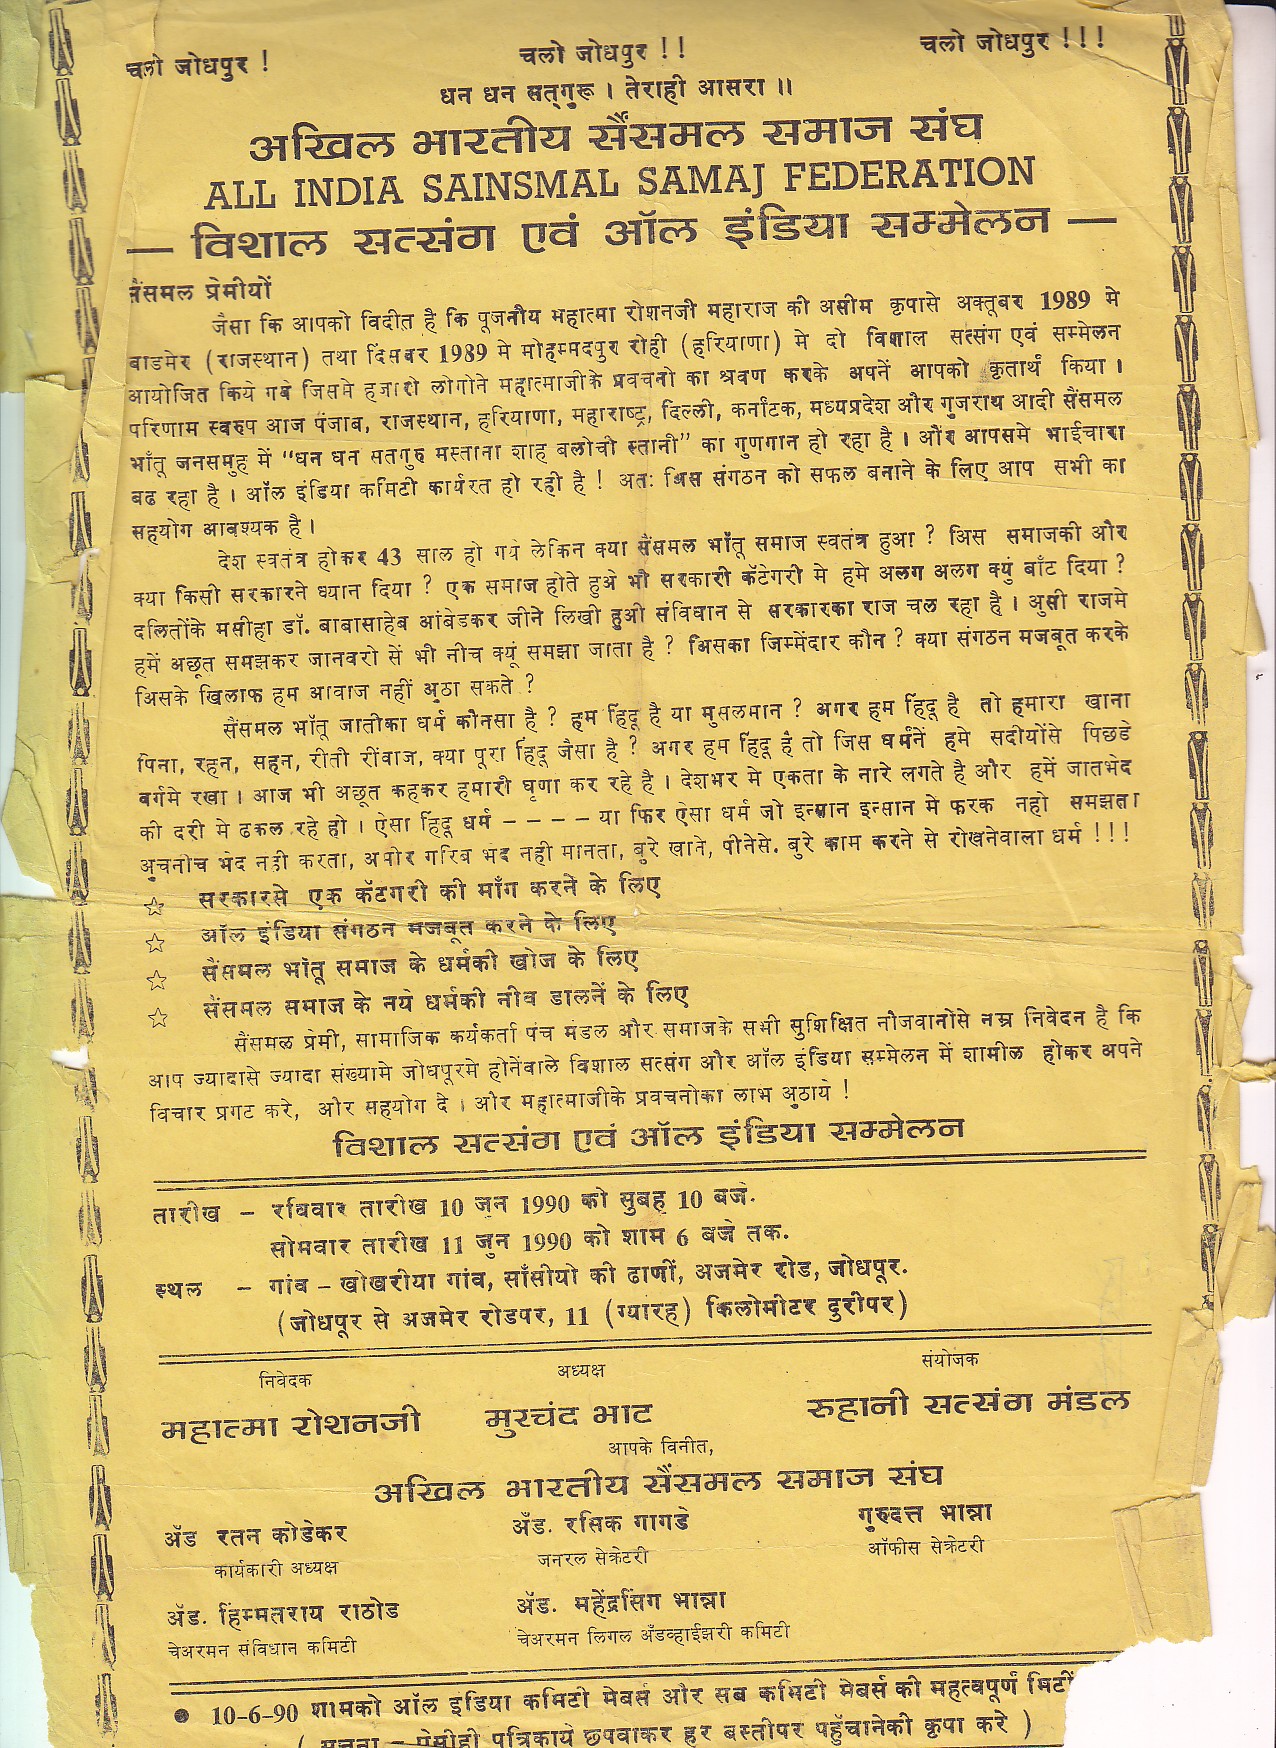 चलो जोधपुर ! चलो जोधपुर !! चलो जोधपुर !!!
धन धन सत्गुरू । तेराही आसरा ॥
अखिल भारतीय सैंसमल समाज संघ
ALL INDIA SAINSMAL SAMAJ FEDERATION
— विशाल सत्संग एवं ऑल इंडिया सम्मेलन —
सैंसमल प्रेमीयों
जैसा कि आपको विदीत है कि पूजनीय महात्मा रोशनजी महाराज की असीम कृपासे अक्तूबर 1989 मे
बाडमेर (राजस्थान) तथा दिसंबर 1989 मे मोहम्मदपुर रोही (हरियाणा) मे दो विशाल सत्संग एवं सम्मेलन
आयोजित किये गये जिसमे हजारो लोगोने महात्माजीके प्रवचनो का श्रवण करके अपनें आपको कृतार्थ किया ।
परिणाम स्वरुप आज पंजाब, राजस्थान, हरियाणा, महाराष्ट्र, दिल्ली, कर्नाटक, मध्यप्रदेश और गुजराथ आदी सैंसमल
भाँतू जनसमुह में “धन धन सतगुरु मस्ताना शाह बलोची स्तानी” का गुणगान हो रहा है । और आपसमे भाईचारा
बढ रहा है । ऑल इंडिया कमिटी कार्यरत हो रही है ! अतः अिस संगठन को सफल बनाने के लिए आप सभी का
सहयोग आवश्यक है ।
देश स्वतंत्र होकर 43 साल हो गये लेकिन क्या सैंसमल भाँतू समाज स्वतंत्र हुआ ? अिस समाजकी और
क्या किसी सरकारने ध्यान दिया ? एक समाज होते हुअे भी सरकारी कॅटेगरी मे हमे अलग अलग क्युं बाँट दिया ?
दलितोंके मसीहा डॉ. बाबासाहेब आंबेडकर जीने लिखी हुओ संविधान से सरकारका राज चल रहा है । अुसी राजमे
हमें अछूत समझकर जानवरो सें भी नीच क्यूं समझा जाता है ? अिसका जिम्मेंदार कौन ? क्या संगठन मजबूत करके
अिसके खिलाफ हम आवाज नहीं अुठा सकते ?
सैंसमल भाँतू जातीका धर्म कौनसा है ? हम हिंदू है या मुसलमान ? अगर हम हिंदू है तो हमारा खाना
पिना, रहन, सहन, रीती रींवाज, क्या पूरा हिंदू जैसा है ? अगर हम हिंदू है तो जिस धर्मनें हमे सदीयोंसे पिछडे
वर्गमे रखा । आज भी अछूत कहकर हमारी घृणा कर रहे है । देशभर मे एकता के नारे लगते है और हमें जातभेद
की दरी मे ढकल रहे हो । ऐसा हिंदू धर्म – – – – या फिर ऐसा धर्म जो इन्सान इन्सान में फरक नही समझता
अुचनीच भेद नही करता, अमीर गरिब भेद नही मानता, बुरे खाने, पीनेसे. बुरे काम करने से रोखनेवाला धर्म !!!
☆ सरकारसे एक कॅटगरी की माँग करनें के लिए
☆ ऑल इंडिया संगठन मजबूत करने के लिए
☆ सैंसमल भाँतू समाज के धर्मकी खोज के लिए
☆ सैंसमल समाज के नये धर्मकी नीव डालनें के लिए
सैंसमल प्रेमी, सामाजिक कर्यकर्ता पंच मंडल और समाजके सभी सुशिक्षित नौजवानोसे नम्र निवेदन है कि
आप ज्यादासे ज्यादा संख्यामे जोधपूरमे होनेंवाले विशाल सत्संग और ऑल इंडिया सम्मेलन में शामील होकर अपने
विचार प्रगट करे, और सहयोग दे । और महात्माजीके प्रवचनोका लाभ अुठाये !
विशाल सत्संग एवं ऑल इंडिया सम्मेलन
तारीख – रविवार तारीख 10 जून 1990 को सुबह 10 बजे.
सोमवार तारीख 11 जुन 1990 को शाम 6 बजे तक.
स्थल – गांव – खोखरीया गांव, साँसीयो की ढाणीं, अजमेर रोड, जोधपूर.
(जोधपूर से अजमेर रोडपर, 11 (ग्यारह) किलोमीटर दुरीपर)
निवेदक अध्यक्ष संयोजक
महात्मा रोशनजी मुरचंद भाट रुहानी सत्संग मंडल
आपके विनीत,
अखिल भारतीय सैंसमल समाज संघ
अॅड रतन कोडेकर अॅड. रसिक गागडे गुरुदत्त भान्ना
कार्यकारी अध्यक्ष जनरल सेक्रेटरी ऑफीस सेक्रेटरी
अॅड. हिंम्मतराय राठोड अॅड. महेंद्रसिंग भान्ना
चेअरमन संविधान कमिटी चेअरमन लिगल अॅडव्हाईझरी कमिटी
● 10-6-90 शामको ऑल इंडिया कमिटी मेंबर्स और सब कमिटी मेंबर्स की महत्वपूर्ण मिटीं
( सूचना – ऐसीही पत्रिकाये छपवाकर हर बस्तीपर पहुँचानेकी कृपा करे )